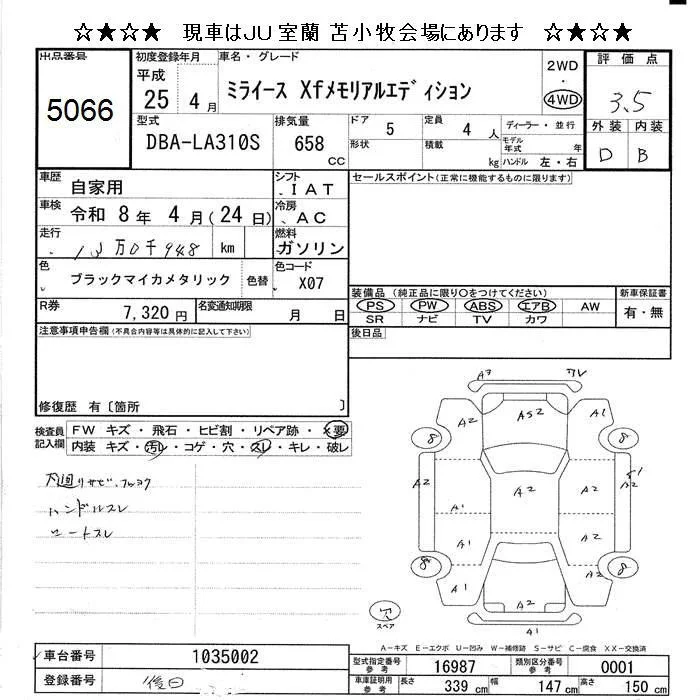 ☆★☆★ 現車はJU室蘭 苫小牧会場にあります ☆★☆★
出品番号
5066
初度登録年月
平成
25 4月
車名・グレード
ミライース Xfメモリアルエディション
2WD
・
4WD
評価点
3.5
外装 内装
D B
型式
DBA-LA310S
排気量
658
CC
ドア 5
形状
定員 4 人
積載 kg
ディーラー・並行
モデル年式 年
ハンドル 左・右
車歴
自家用
シフト
IAT
セールスポイント(正常に機能するものに限ります)
車検
令和 8年 4月(24日)
冷房
AC
走行
万0千948 km
燃料
ガソリン
色
ブラックマイカメタリック
色替
色コード
X07
装備品 (純正品に限り○をつけてください)
PS PW ABS エアB AW
SR ナビ TV カワ
新車保証書
有・無
R券
7,320円
名変通知期限
月 日
後日品
注意事項申告欄(不具合内容等は具体的に記入して下さい)
修復歴 有〔箇所 〕
検査員
記入欄
FW キズ・飛石・ヒビ割・リペア跡・×要
内装 キズ・汚レ・コゲ・穴・スレ・キレ・破レ
ハンドルスレ
シートスレ
A2 A1
A2 AS2 A1
8 8
A2 A1 A2 A2 A2
A1 A2
8 8
A1 A2
A2
A1
穴
スペア
A-キズ E-エクボ U-凹み W-補修跡 S-サビ C-腐食 XX-交換済
車台番号
1035002
登録番号
後日
型式指定番号
参考
16987
類別区分番号
参考
0001
車庫証明用
参考
長さ 339 cm
幅 147 cm
高さ 150 cm